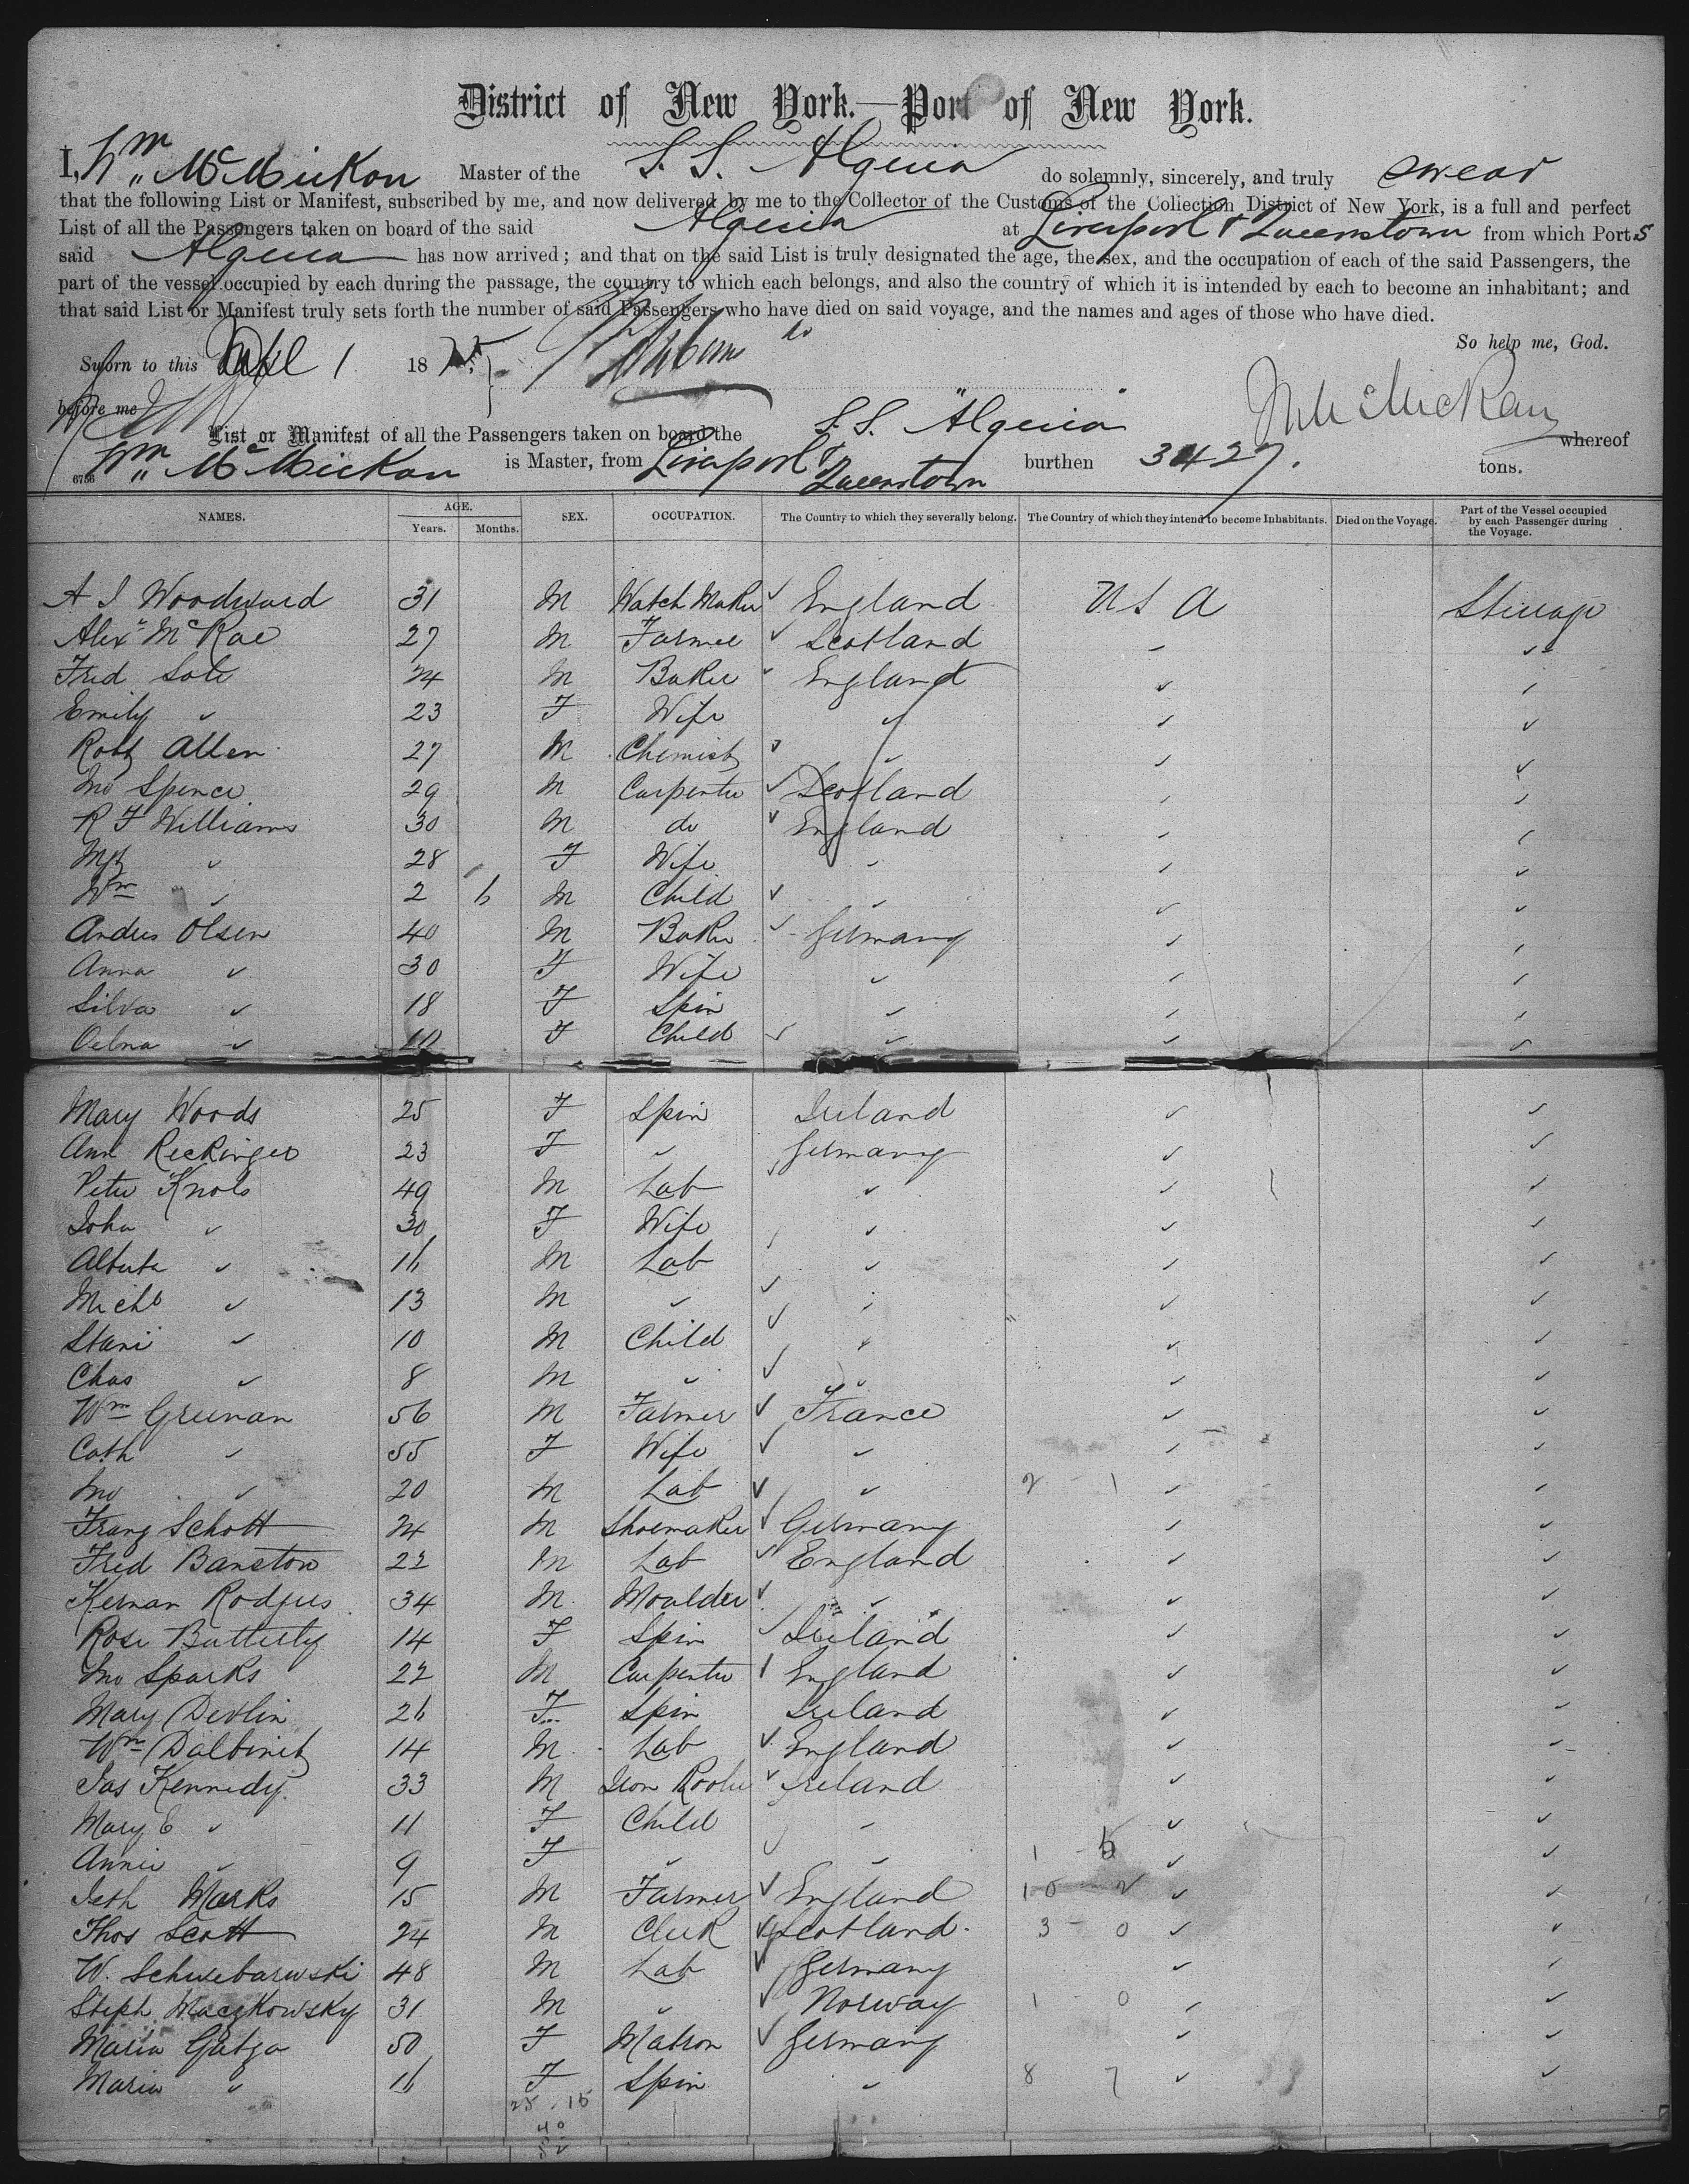 District of New York.—Port of New York.
I, Wm „ McMickan Master of the S. S. Algeria do solemnly, sincerely, and truly swear
that the following List or Manifest, subscribed by me, and now delivered by me to the Collector of the Customs of the Collection District of New York, is a full and perfect
List of all the Passengers taken on board of the said Algeria at Liverpool & Queenstown from which Ports
said Algeria has now arrived; and that on the said List is truly designated the age, the sex, and the occupation of each of the said Passengers, the
part of the vessel occupied by each during the passage, the country to which each belongs, and also the country of which it is intended by each to become an inhabitant; and
that said List or Manifest truly sets forth the number of said Passengers who have died on said voyage, and the names and ages of those who have died.
So help me, God.
Sworn to this 1 1875
before me
List or Manifest of all the Passengers taken on board the S.S. "Algeria" whereof
Wm „ McMickan is Master, from Liverpool & Queenstown burthen 3427. tons.
6756
NAMES. AGE. Years. Months. SEX. OCCUPATION. The Country to which they severally belong. The Country of which they intend to become Inhabitants. Died on the Voyage. Part of the Vessel occupied by each Passenger during the Voyage.
A I Woodward 31 M Watch Maker England U S A Steerage
Alexr McRae 27 M Farmer Scotland
Fred Sole 24 M Baker England
Emily " 23 F Wife "
Robt Allen 27 M Chemist "
Jno Spence 29 M Carpenter Scotland
R F Williams 30 M do England
Mgt " 28 F Wife "
Wm " 2 6 M Child "
Andres Olsen 40 M Baker Germany
Anna " 30 F Wife "
Silva " 18 F Spin "
Oelna " 10 F Child "
Mary Woods 25 F Spin Ireland
Ann Reckinger 23 F " Germany
Peter Knols 49 M Lab "
Joha " 30 F Wife "
Alberte " 16 M Lab "
Michl " 13 M " "
Stani " 10 M Child "
Chas " 8 M " "
Wm Greenan 56 M Farmer France
Cath " 55 F Wife "
Jno " 20 M Lab " 2 - 1
Franz Schott 24 M Shoemaker Germany
Fred Banston 22 M Lab England
Kernan Rodgers 34 M Moulder "
Rose Butterly 14 F Spin Ireland
Jno Sparks 22 M Carpenter England
Mary Devlin 26 F Spin Ireland
Wm Dalbinet 14 M Lab England
Jas Kennedy 33 M Iron Ireland
Mary E " 11 F Child "
Annie " 9 F " " 1 - 5
Seth Marks 15 M Farmer England 10 - 2
Thos Scott 24 M Clerk Scotland 3 - 0
W. Schwebarwski 48 M Lab Germany
Steph Maczkowsky 31 M " Norway 1 - 0
Maria Gatza 50 F Matron Germany
Maria " 16 F Spin " 8 7
25 . 15
40